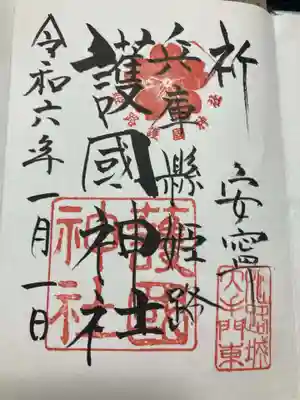 祈
安寧
兵庫縣姫路
護國神社
令和六年一月一日
護國
神社
姫路城
大手門東